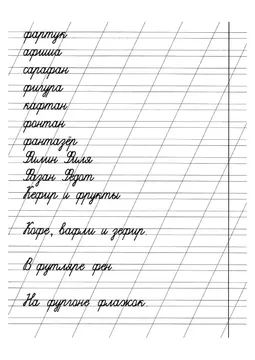 фартук
афиша
сарафан
фигура
кафтан
фонтан
фантазёр
Филин Филя
Фазан Федот
Кефир и фрукты
Кофе, вафли и зефир.
В футляре фен.
На фургоне флажок.